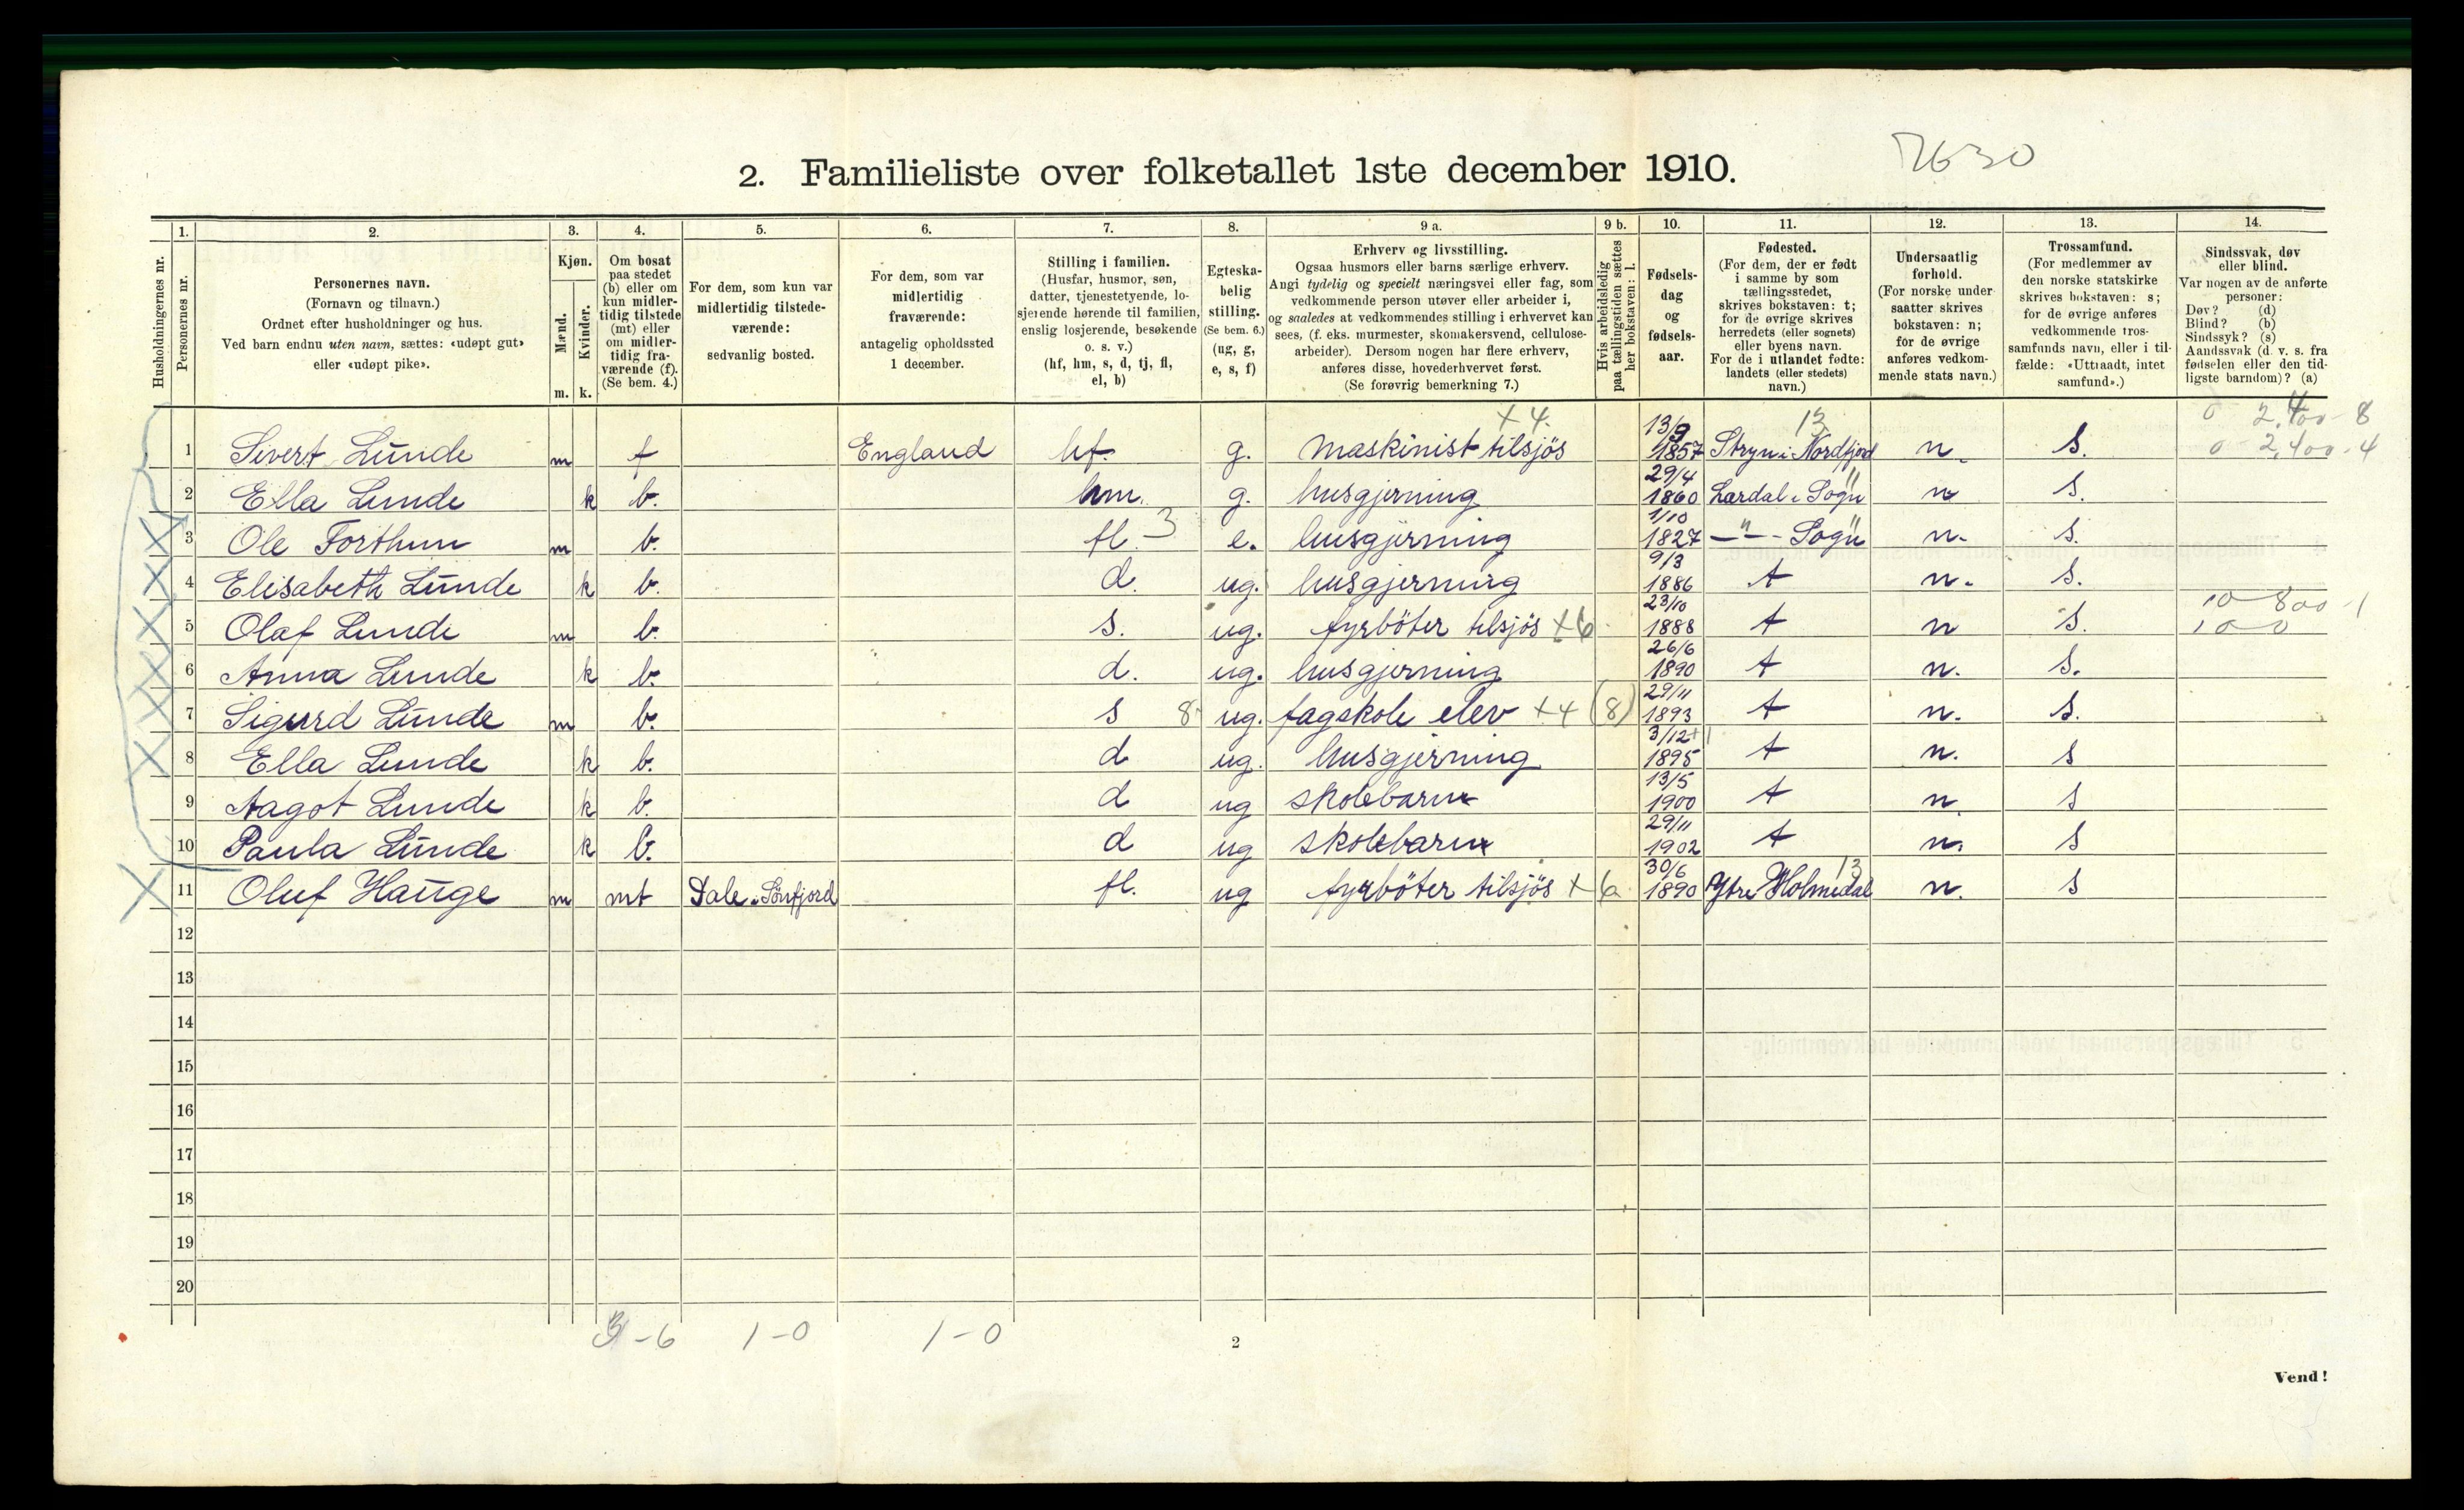 2. Familieliste over folketallet 1ste december 1910.
7630
Husholdningernes nr.
1. Personernes nr.
2. Personernes navn.
(Fornavn og tilnavn.)
Ordnet efter husholdninger og hus.
Ved barn endnu uten navn, sættes: «udøpt gut»
eller «udøpt pike».
3. Kjøn.
Mænd. m.
Kvinder. k.
4. Om bosat
paa stedet
(b) eller om
kun midler-
tidig tilstede
(mt) eller
om midler-
tidig fra-
værende (f).
(Se bem. 4.)
5. For dem, som kun var
midlertidig tilstede-
værende:
sedvanlig bosted.
6. For dem, som var
midlertidig
fraværende:
antagelig opholdssted
1 december.
7. Stilling i familien.
(Husfar, husmor, søn,
datter, tjenestetyende, lo-
sjerende hørende til familien,
enslig losjerende, besøkende
o. s. v.)
(hf, hm, s, d, tj, fl,
el, b)
8. Egteska-
belig
stilling.
(Se bem. 6.)
(ug, g,
e, s, f)
9 a. Erhverv og livsstilling.
Ogsaa husmors eller barns særlige erhverv.
Angi tydelig og specielt næringsvei eller fag, som
vedkommende person utøver eller arbeider i,
og saaledes at vedkommendes stilling i erhvervet kan
sees, (f. eks. murmester, skomakersvend, cellulose-
arbeider). Dersom nogen har flere erhverv,
anføres disse, hovederhvervet først.
(Se forøvrig bemerkning 7.)
9 b. Hvis arbeidsledig
paa tællingstiden sættes
her bokstaven: l.
10. Fødsels-
dag
og
fødsels-
aar.
11. Fødested.
(For dem, der er født
i samme by som
tællingsstedet,
skrives bokstaven: t;
for de øvrige skrives
herredets (eller sognets)
eller byens navn.
For de i utlandet fødte:
landets (eller stedets)
navn.)
12. Undersaatlig
forhold.
(For norske under-
saatter skrives
bokstaven: n;
for de øvrige
anføres vedkom-
mende stats navn.)
13. Trossamfund.
(For medlemmer av
den norske statskirke
skrives bokstaven: s;
for de øvrige anføres
vedkommende tros-
samfunds navn, eller i til-
fælde: «Uttraadt, intet
samfund».)
14. Sindssvak, døv
eller blind.
Var nogen av de anførte
personer:
Døv? (d)
Blind? (b)
Sindssyk? (s)
Aandssvak (d. v. s. fra
fødselen eller den tid-
ligste barndom)? (a)
1 Sivert Lunde m f England hf. g. Maskinist tilsjös +4. 13/9 1857 Stryn i Nordfjord 13 n. S. 0 2,400-8 0 2,400-4
2 Ella Lunde k b. hm. g. husgjerning 29/4 1860 Lærdal i Sogn " n S.
3 Ole Forthun m b. fl. 3 e. husgjerning 1/10 1827 —"— Sogn " n. s.
4 Elisabeth Lunde k b. d. ug. husgjerning 9/3 1886 t n. S.
5 Olaf Lunde m b. S. ug. fyrböter tilsjös +6 23/10 1888 t n S. 10 800-1 100
6 Anna Lunde k b. d. ug. husgjerning 26/6 1890 t n. S.
7 Sigurd Lunde m b. s 8 ug. fagskole elev +4 (8) 29/11 1893 t n. S.
8 Ella Lunde k b. d ug. husgjerning 3/12 1895 t n. s
9 Aagot Lunde k b. d ug skolebarn 13/5 1900 t n. s
10 Paula Lunde k b. d ug skolebarn 29/11 1902 t n. s
11 Oluf Hauge m mt Dale i Sönfjord fl. ug fyrböter tilsjös +6a 30/6 1890 Ytre Holmedal 13 n. s
12
13
14
15
16
17
18
19
20
3-6 1-0 1-0
2
Vend!